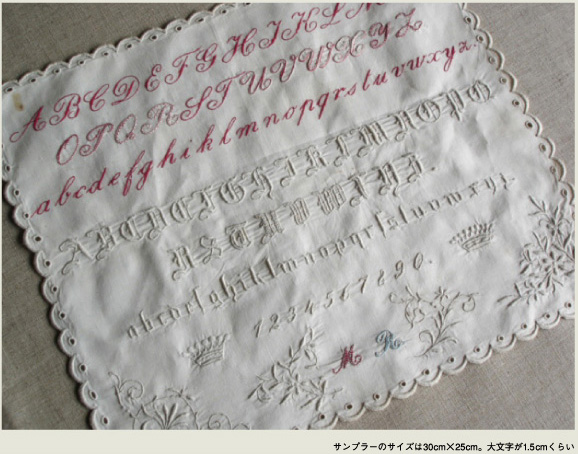 A B C D E F G H I J K L M
O P Q R S T U V W X Y Z
a b c d e f g h i k l m n o p q r s t u v w x y z.
A B C D E F G H I K L M N O P Q
R S T U V W X Y Z.
a b c d e f g h i k l m n o p q r s t u v w x y z.
1 2 3 4 5 6 7 8 9 0.
M R
サンプラーのサイズは30cm×25cm。大文字が1.5cmくらい